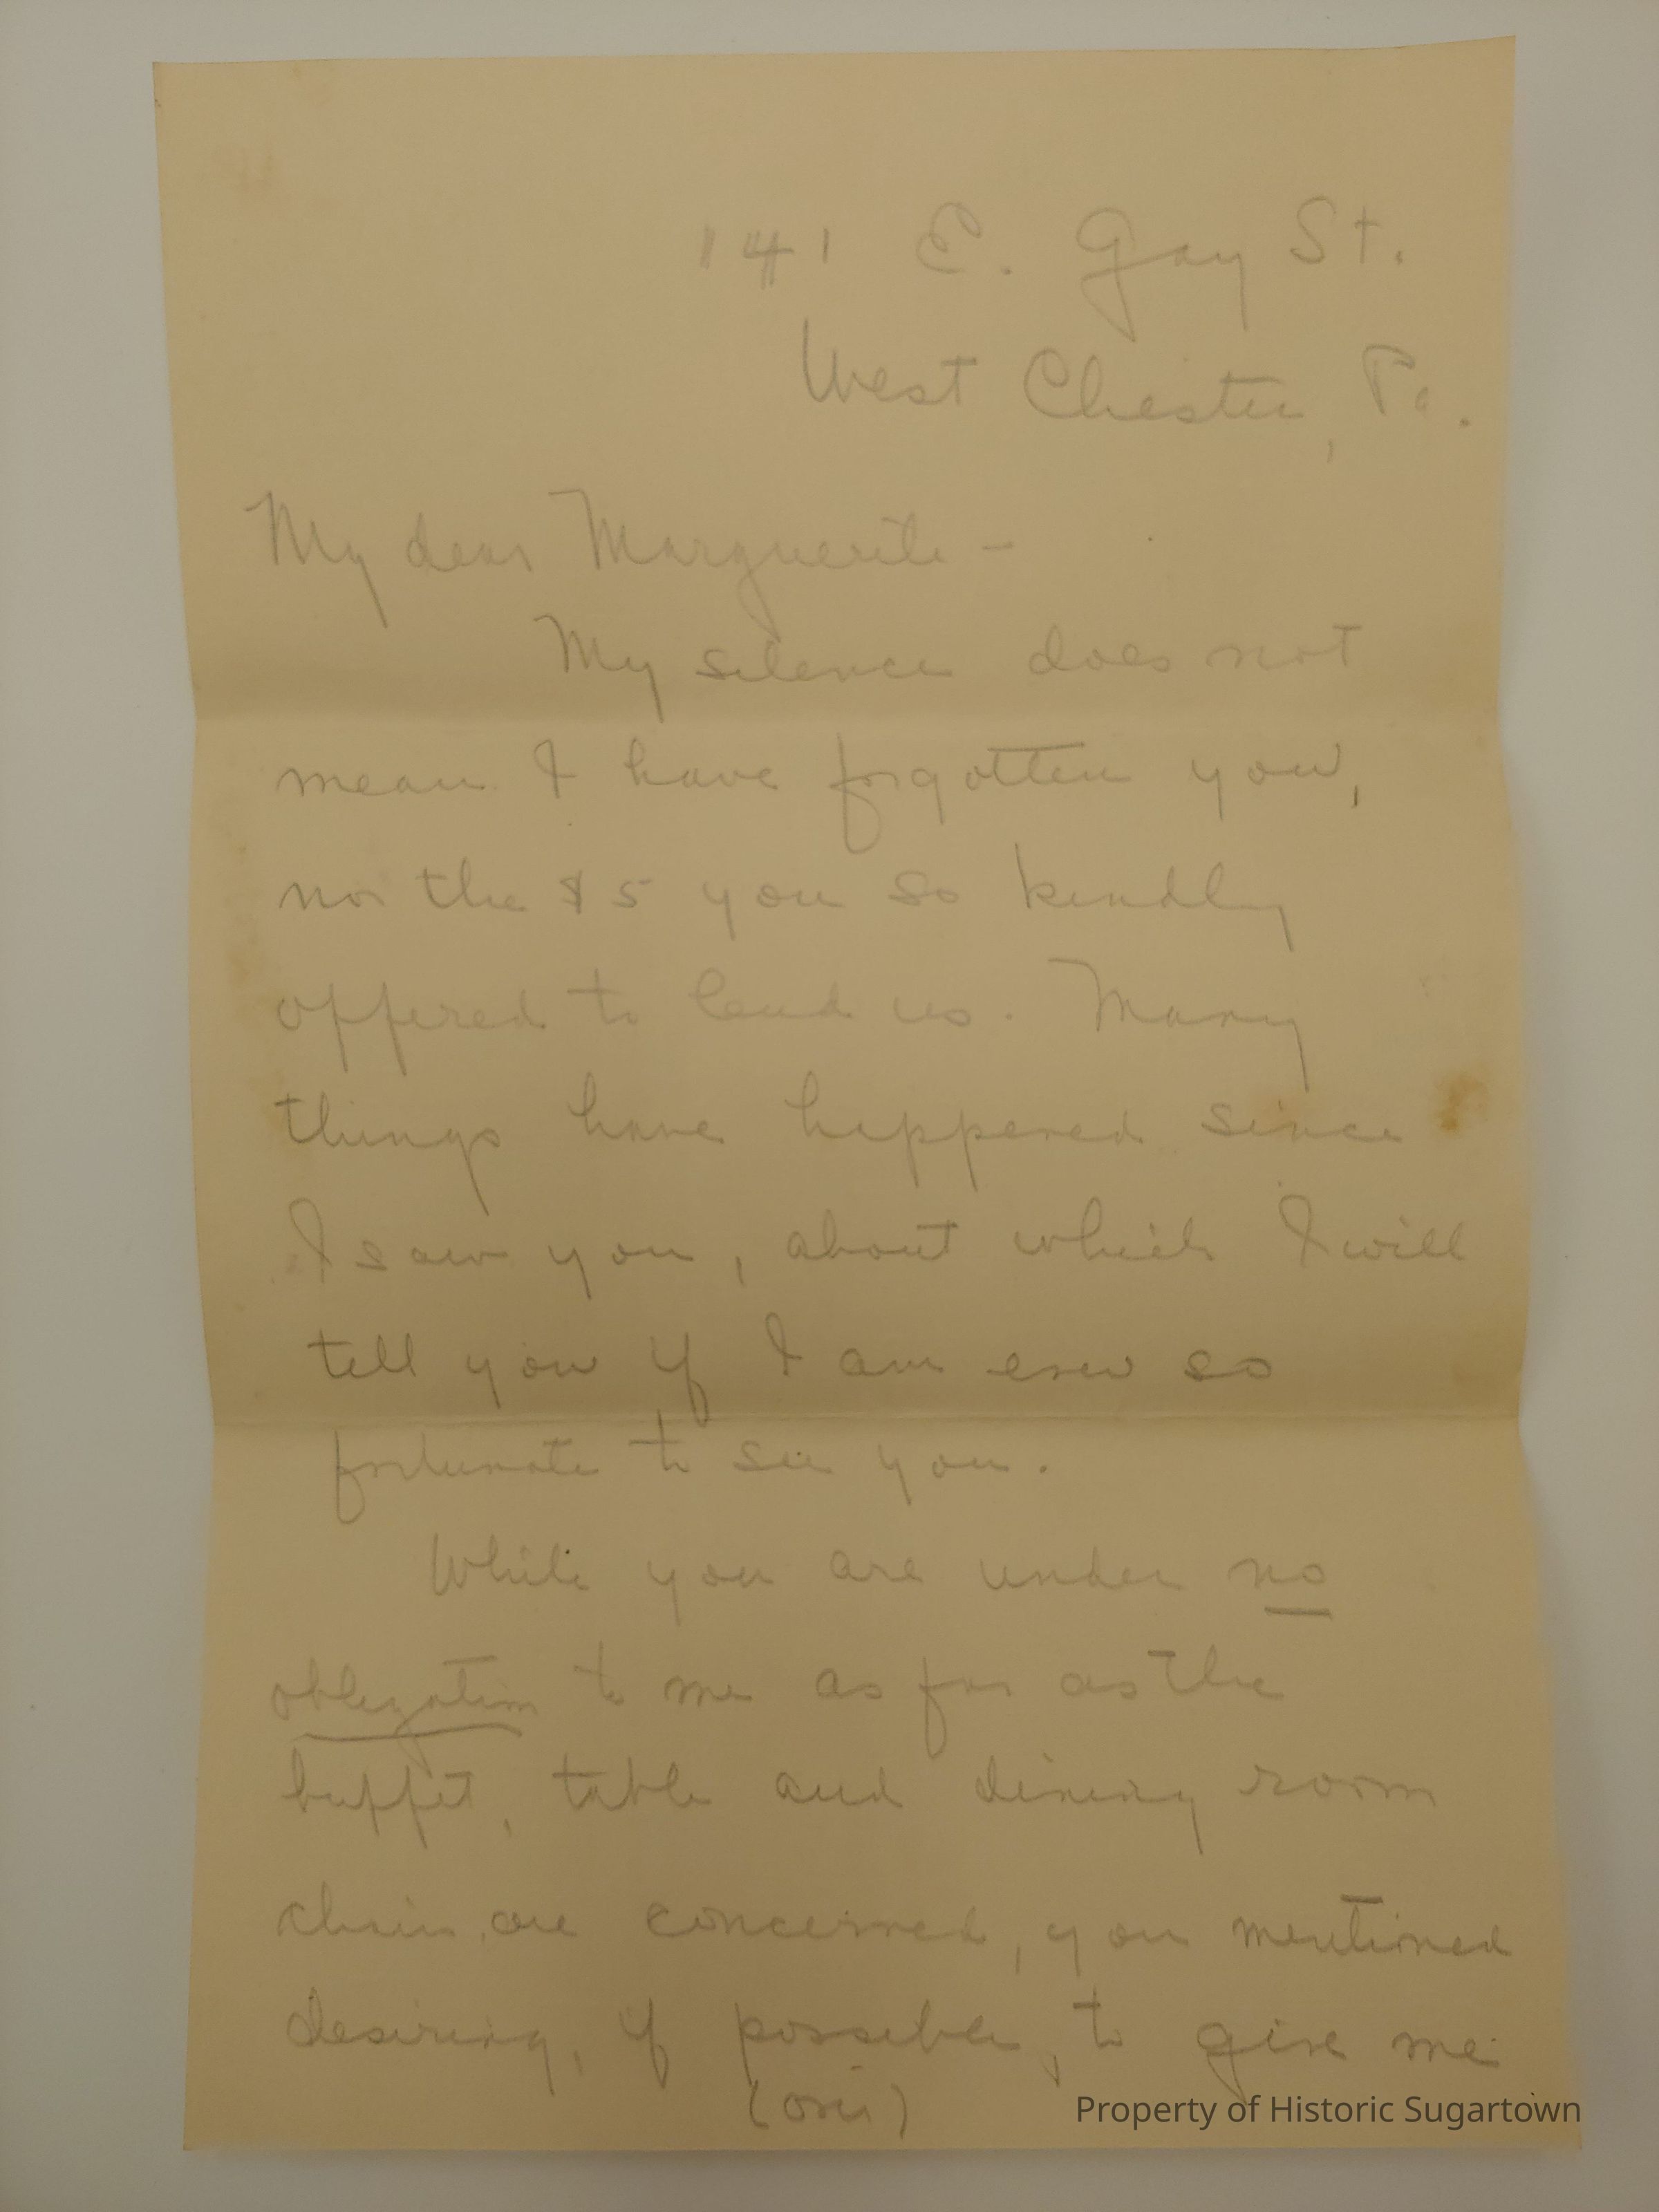 141 E. Gay St.
West Chester, Pa.
My dear Marguerite -
My silence does not
mean I have forgotten you,
nor the $5 you so kindly
offered to lend us. Many
things have happened since
I saw you, about which I will
tell you if I am ever so
fortunate to see you.
While you are under no
obligation to me as far as the
buffet, table and dining room
chairs are concerned, you mentioned
desiring, if possible, to give me
(over)
Property of Historic Sugartown